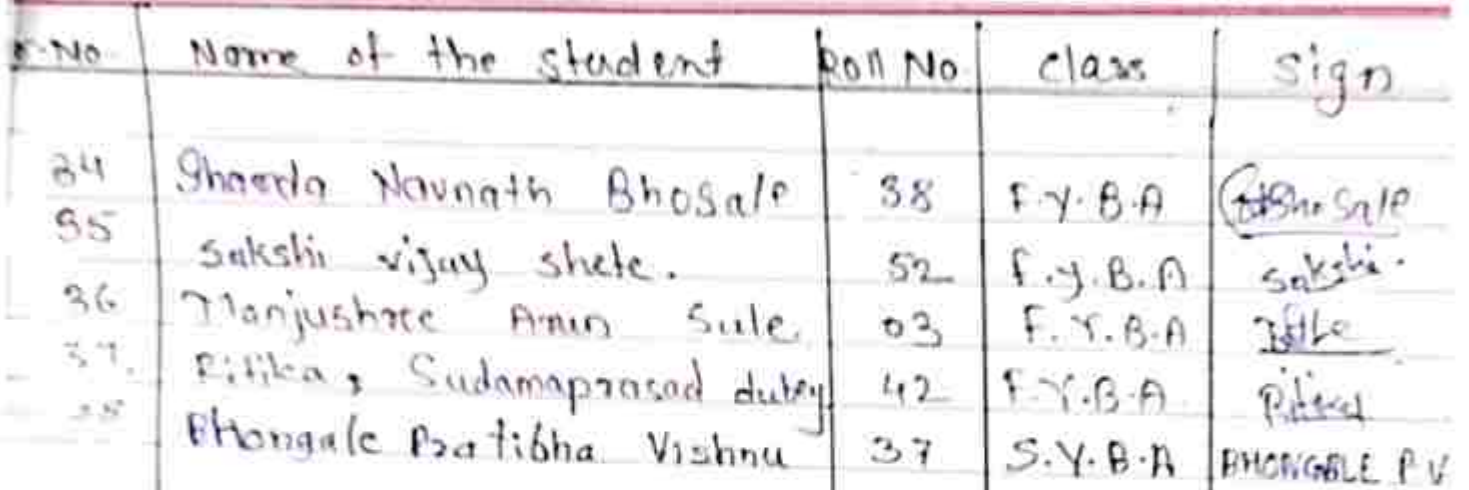 No. Name of the student Roll No Class Sign
34 Navnath Bhosale 38 F.Y.B.A Bhosale
35 Sakshi vijay shete. 52 F.y.B.A Sakshi.
36 Manjushree Arun Sule 03 F.Y.B.A
37. Ritika, Sudamaprasad dubey 42 F.Y.B.A Ritika
Bhongale Pratibha Vishnu 37 S.Y.B.A BHONGALE P V